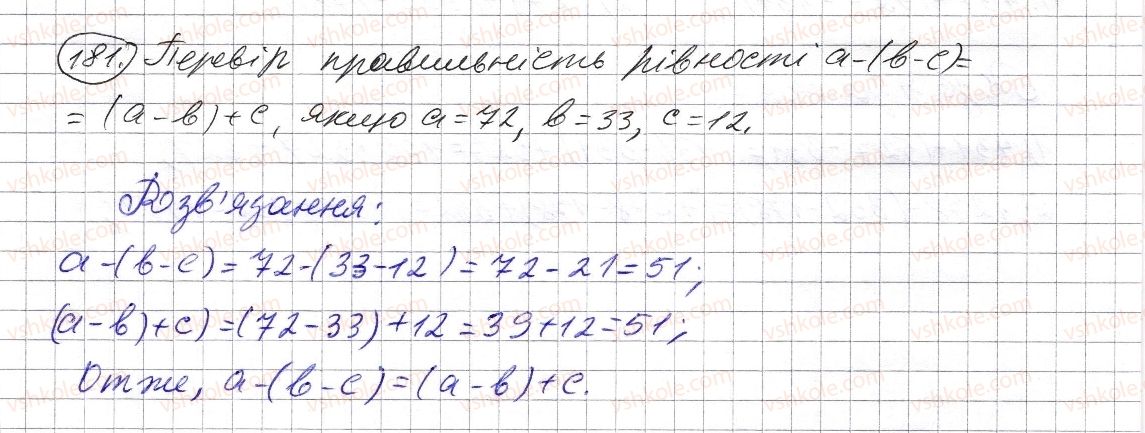 181. Перевір правильність рівності а-(в-с)=
= (а-в)+с, якщо а=72, в=33, с=12.
Розв'язання:
а-(в-с)=72-(33-12)=72-21=51;
(а-в)+с)=(72-33)+12=39+12=51;
Отже, а-(в-с)=(а-в)+с.